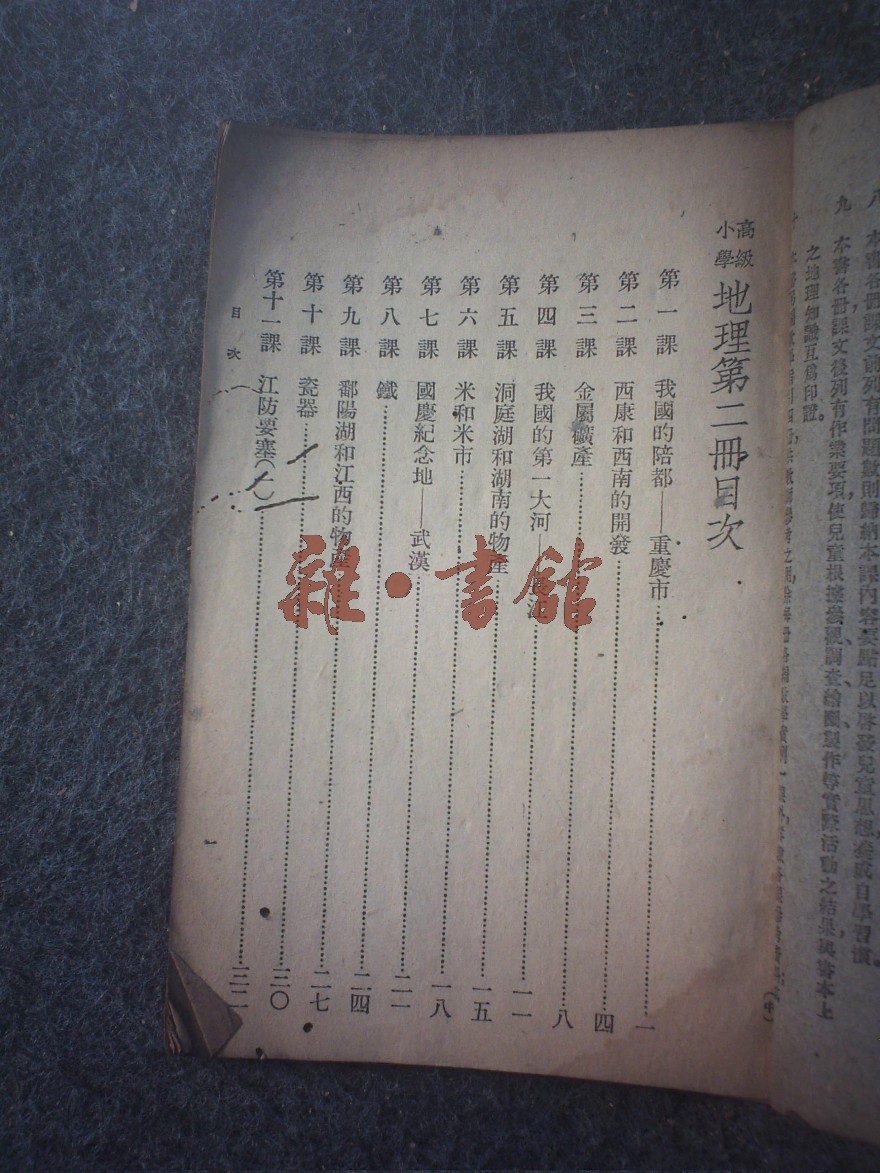 八 本書各冊課文前列有問題數則歸納本課內容要點足以啓發兒童思想養成自學習慣。
九 本書各冊課文後列有作業要項,使兒童根據發現、調查、繪圖、製作等實際活動之結果與書本上
之地理知識互爲印證。
高級小學 地理第二冊目次
第一課 我國的陪都——重慶市……一
第二課 西康和西南的開發……四
第三課 金屬礦產……八
第四課 我國的第一大河——長江……一一
第五課 洞庭湖和湖南的物產……一五
第六課 米和米市……一八
第七課 國慶紀念地——武漢……二一
第八課 鐵……二四
第九課 鄱陽湖和江西的物產……二七
第十課 瓷器……三〇
第十一課 江防要塞(一)……三二
目次
一
雜·書館